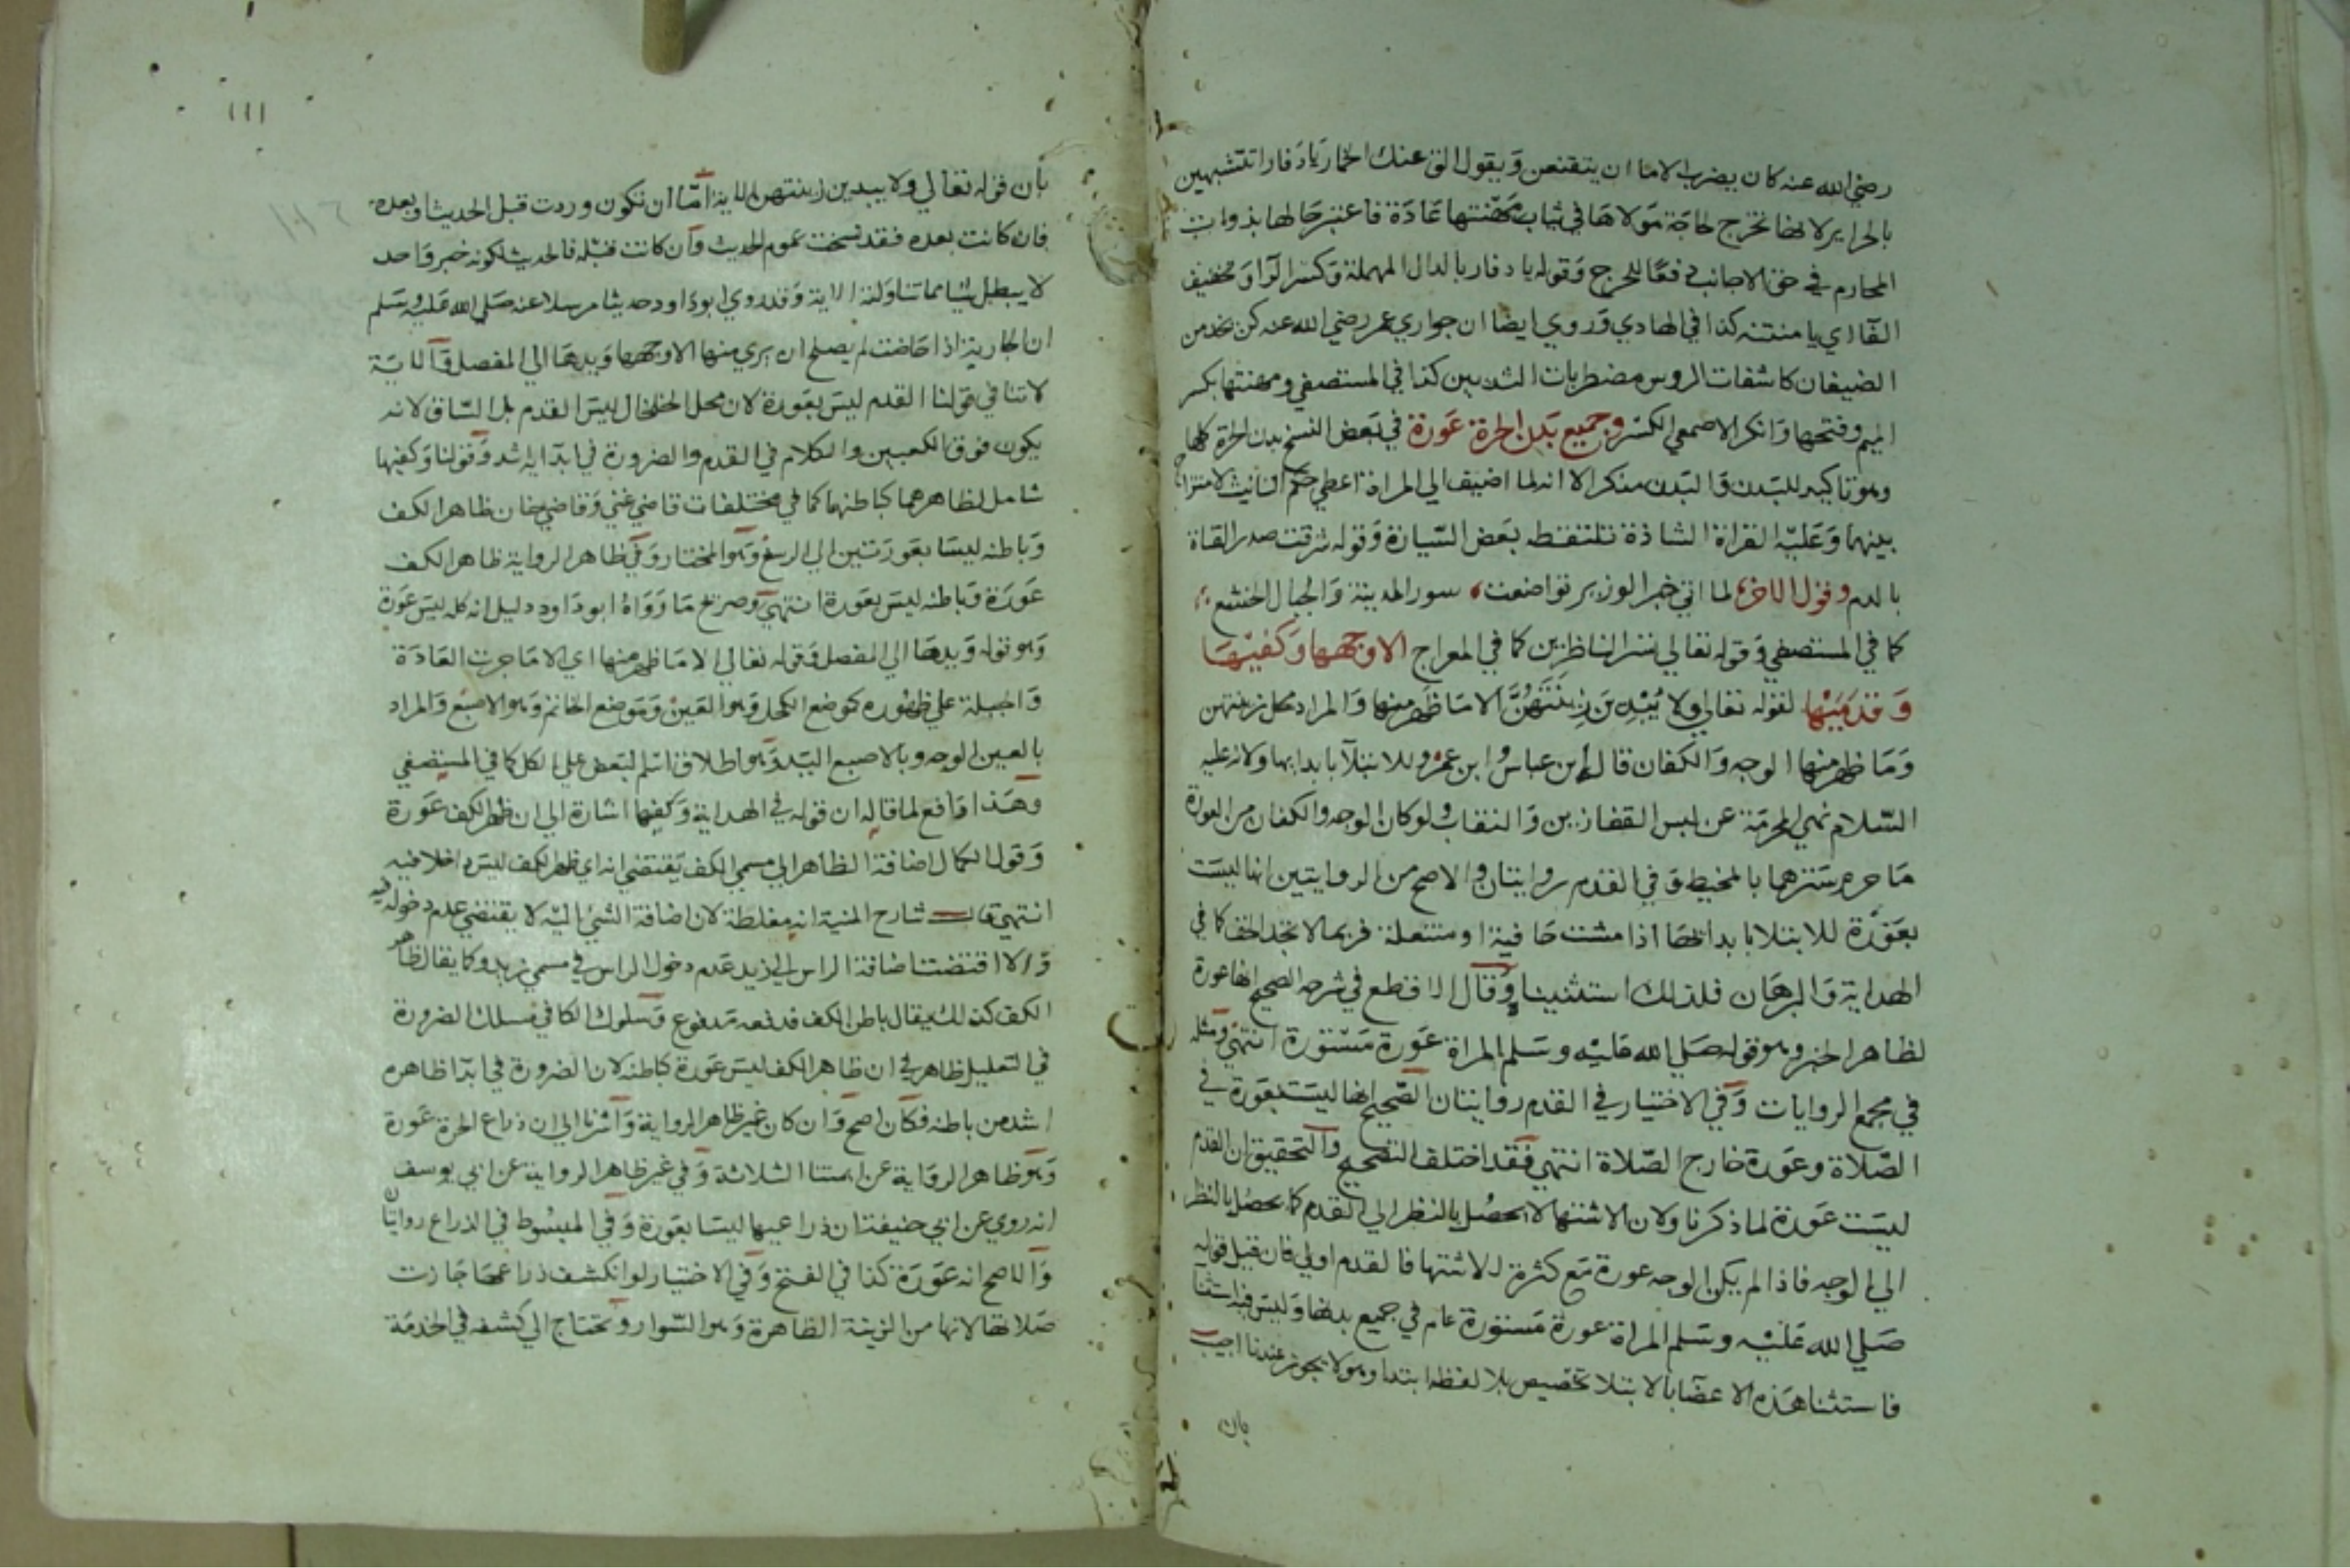 رضي الله عنه كان يضرب الاما ان يتقنعن وَيقول الق عنك الخمار يَا دَفار اتتشبهين
بالحراير لا نها تخرج لحاجَة مَولاهَا في ثياب مَهنتها عَادَة فاعتبر حَالها بذوات
المحارم في حق الاجانب دفعًا للحرج وَقوله يا دفار بالدال المهملة وَكسر الرا وَتخفيف
الفَا اي يا منتنه كذا في الهادي وَروي ايضا ان جواري عمر رضي الله عنه كن يخدمن
الضيفان كاشفات الروس مضطربات الثديين كذا في المستصفي ومهنتها بكسر
الميم وفتحها وَانكر الاصمعي الكسر وجميع بَدن الحرة عَورة في بَعض النسخ بدن الحرة كلها
وهو تاكيد للبَدن وَالبَدن مذكر الا انه لما اضيف الي المراة اعطي حكم التانيث لامتزاج
بينهما وَعَليْه القراة الشاذة تلتقطه بعَض السّيارة وَقوله شرقت صدر القناة
بالدم وقول الاخر لما اتي خبر الوزير تواضعت، سور المدينة وَالجبال الخشع
كما في المستصفي وَقوله تعالي تسر الناظرين كما في المعراج الا وجههَا وَكفيْهَا
وَقدَمَيْها لقوله تعالي ولا يُبْدِينَ زِينَتَهُنَّ الا مَا ظَهر منها وَالمراد محل زينتهن
وَمَا ظهر منها الوجه وَالكفان قاله ابن عباس وابن عمر وللابتلآ بابدايها ولانه عليه
السّلام نهي المحرمَة عن لبس القفازين وَالنقاب ولو كان الوجه والكفان من العورة
مَا حرم سَترهما بالمخيط وَفي القدم روايتان والاصح من الروايتين انها ليسَت
بعَوْرَة للابتلا بابدائهَا اذا مشت حَافية او متنعلة فربما لا تجد الخف كما في
الهداية وَالبرهَان فلذلك استثنينا وَقال الاقطع في شرحه الصحيح انها عورة
لظاهر الخبر وهو قوله صَلي الله عَليْه وسَلم المراة عَورة مَسْتورة انتهي وَمثله
في مجمع الروايات وَفي الاختيار في القدم روايتان الصَّحيح انها ليست بعَورة في
الصّلاة وعَورة خارج الصّلاة انتهي فَقد اختلف التصحيح وَالتحقيق ان القدم
ليسَت عَورة لما ذكرنا ولان الاشتها لا يحصُل بالنظر الي القدم كما يحصُل بالنظر
الي الوجه فاذا لم يكن الوجه عورة مَع كثرة الاشتها فالقدم اولي فان قيل قوله
صَلي الله عَليْه وسَلم المراة عورة مَستورة عام في جميع بدنها وَليسَ فيه استثنا
فاستثنا هَذه الاعضا بالابتلا تخصيص بلا لفظ ابتدا وهو لا يجوز عندنا اجيب
بان
١١١
بأن قوله تعالي ولا يبدين زينتهن الاية امَّا ان تكون وردت قبل الحديث او بعده
فان كانت بعده فقد نسخت عموم الحديث وَان كانت قبله فالحديث لكونه خبر وَاحد
لا يبطل شيا مما تناولته الاية وَقد روي ابو دَاود حديثا مرسلا عنه صَلي الله عَليْه وسَلم
ان الجارية اذا حَاضت لم يصلح ان يري منها الا وجهها وَيدهَا الي المفصل وَالاية
لا تنافي قولنا القدم ليسَ بعَورة لان محل الخلخال ليسَ القدم بل السّاق لانه
يكون فوق الكعبين والكلام في القدم والضرورة في ابدآيه اشد وَقولنا وَكفيها
شامل لظاهرهما كباطنهما كما في مختلفات قاضي غني وَقاضي خان ظاهر الكف
وَباطنه ليسَا بعَورَتين الي الرسغ وَهو المختار وَفي ظاهر الرواية ظاهر الكف
عَورَة وَباطنه ليسَ بعَورة انتهي وصريح مَا رَوَاهُ ابو دَاود دليل انه كله ليسَ عَورة
وَهو قوله وَيدهَا الي المفصل وَقوله تعالي الا مَا ظهر منها اي الا مَا جرت العَادَة
وَالجبلة علي ظهُوره كموضع الكحل وَهو العَين وَمَوضع الخاتم وَهو الاصبَع وَالمراد
بالعين الوجه وبالاصبع اليَد وَهو اطلاق اسْم البَعض علي الكل كما في المستصفي
وَهَذا دَافع لما قاله ان قوله في الهداية وَكفيها اشارة الي ان ظهر الكف عَورة
وَقول الكمال اضافة الظاهر الي مسمي الكف يَقتضي انه اي ظهر الكف ليسَ داخلا فيه
انتهي قال شارح المنية انه مغلطة لان اضافة الشئ اليْه لا يقتضي عدم دخوله فيه
وَالا اقتضت اضافة الراس الي زيد عَدم دخول الراس في مسمي زيد وكما يقال ظاهر
الكف كذلك يقال باطن الكف فدفعه مَدفوع وَسلوك الكافي مَسلك الضرورة
في التعليل ظاهر في ان ظَاهر الكف ليسَ عَورة كباطنه لان الضرورة في ابدآ ظاهره
اشد من باطنه فكَان اصح وَان كان غير ظاهر الرواية وَاشرنا الي ان ذراع الحرة عَورة
وَهوَ ظاهر الروَاية عن ايمتنا الثلاثة وَفي غير ظاهر الرواية عن ابي يوسف
انه روي عن ابي حنيفة ان ذراعيها ليسَا بعَورة وَفي المبسُوط في الذراع روايتان
وَالاصح انه عَورَة كذا في الفتح وَفي الاختيار لو انكشف ذراعهَا جَازت
صَلاتها لانها من الزينة الظاهرة وَهو السّوار وَتحتاج الي كشفه في الخدمَة